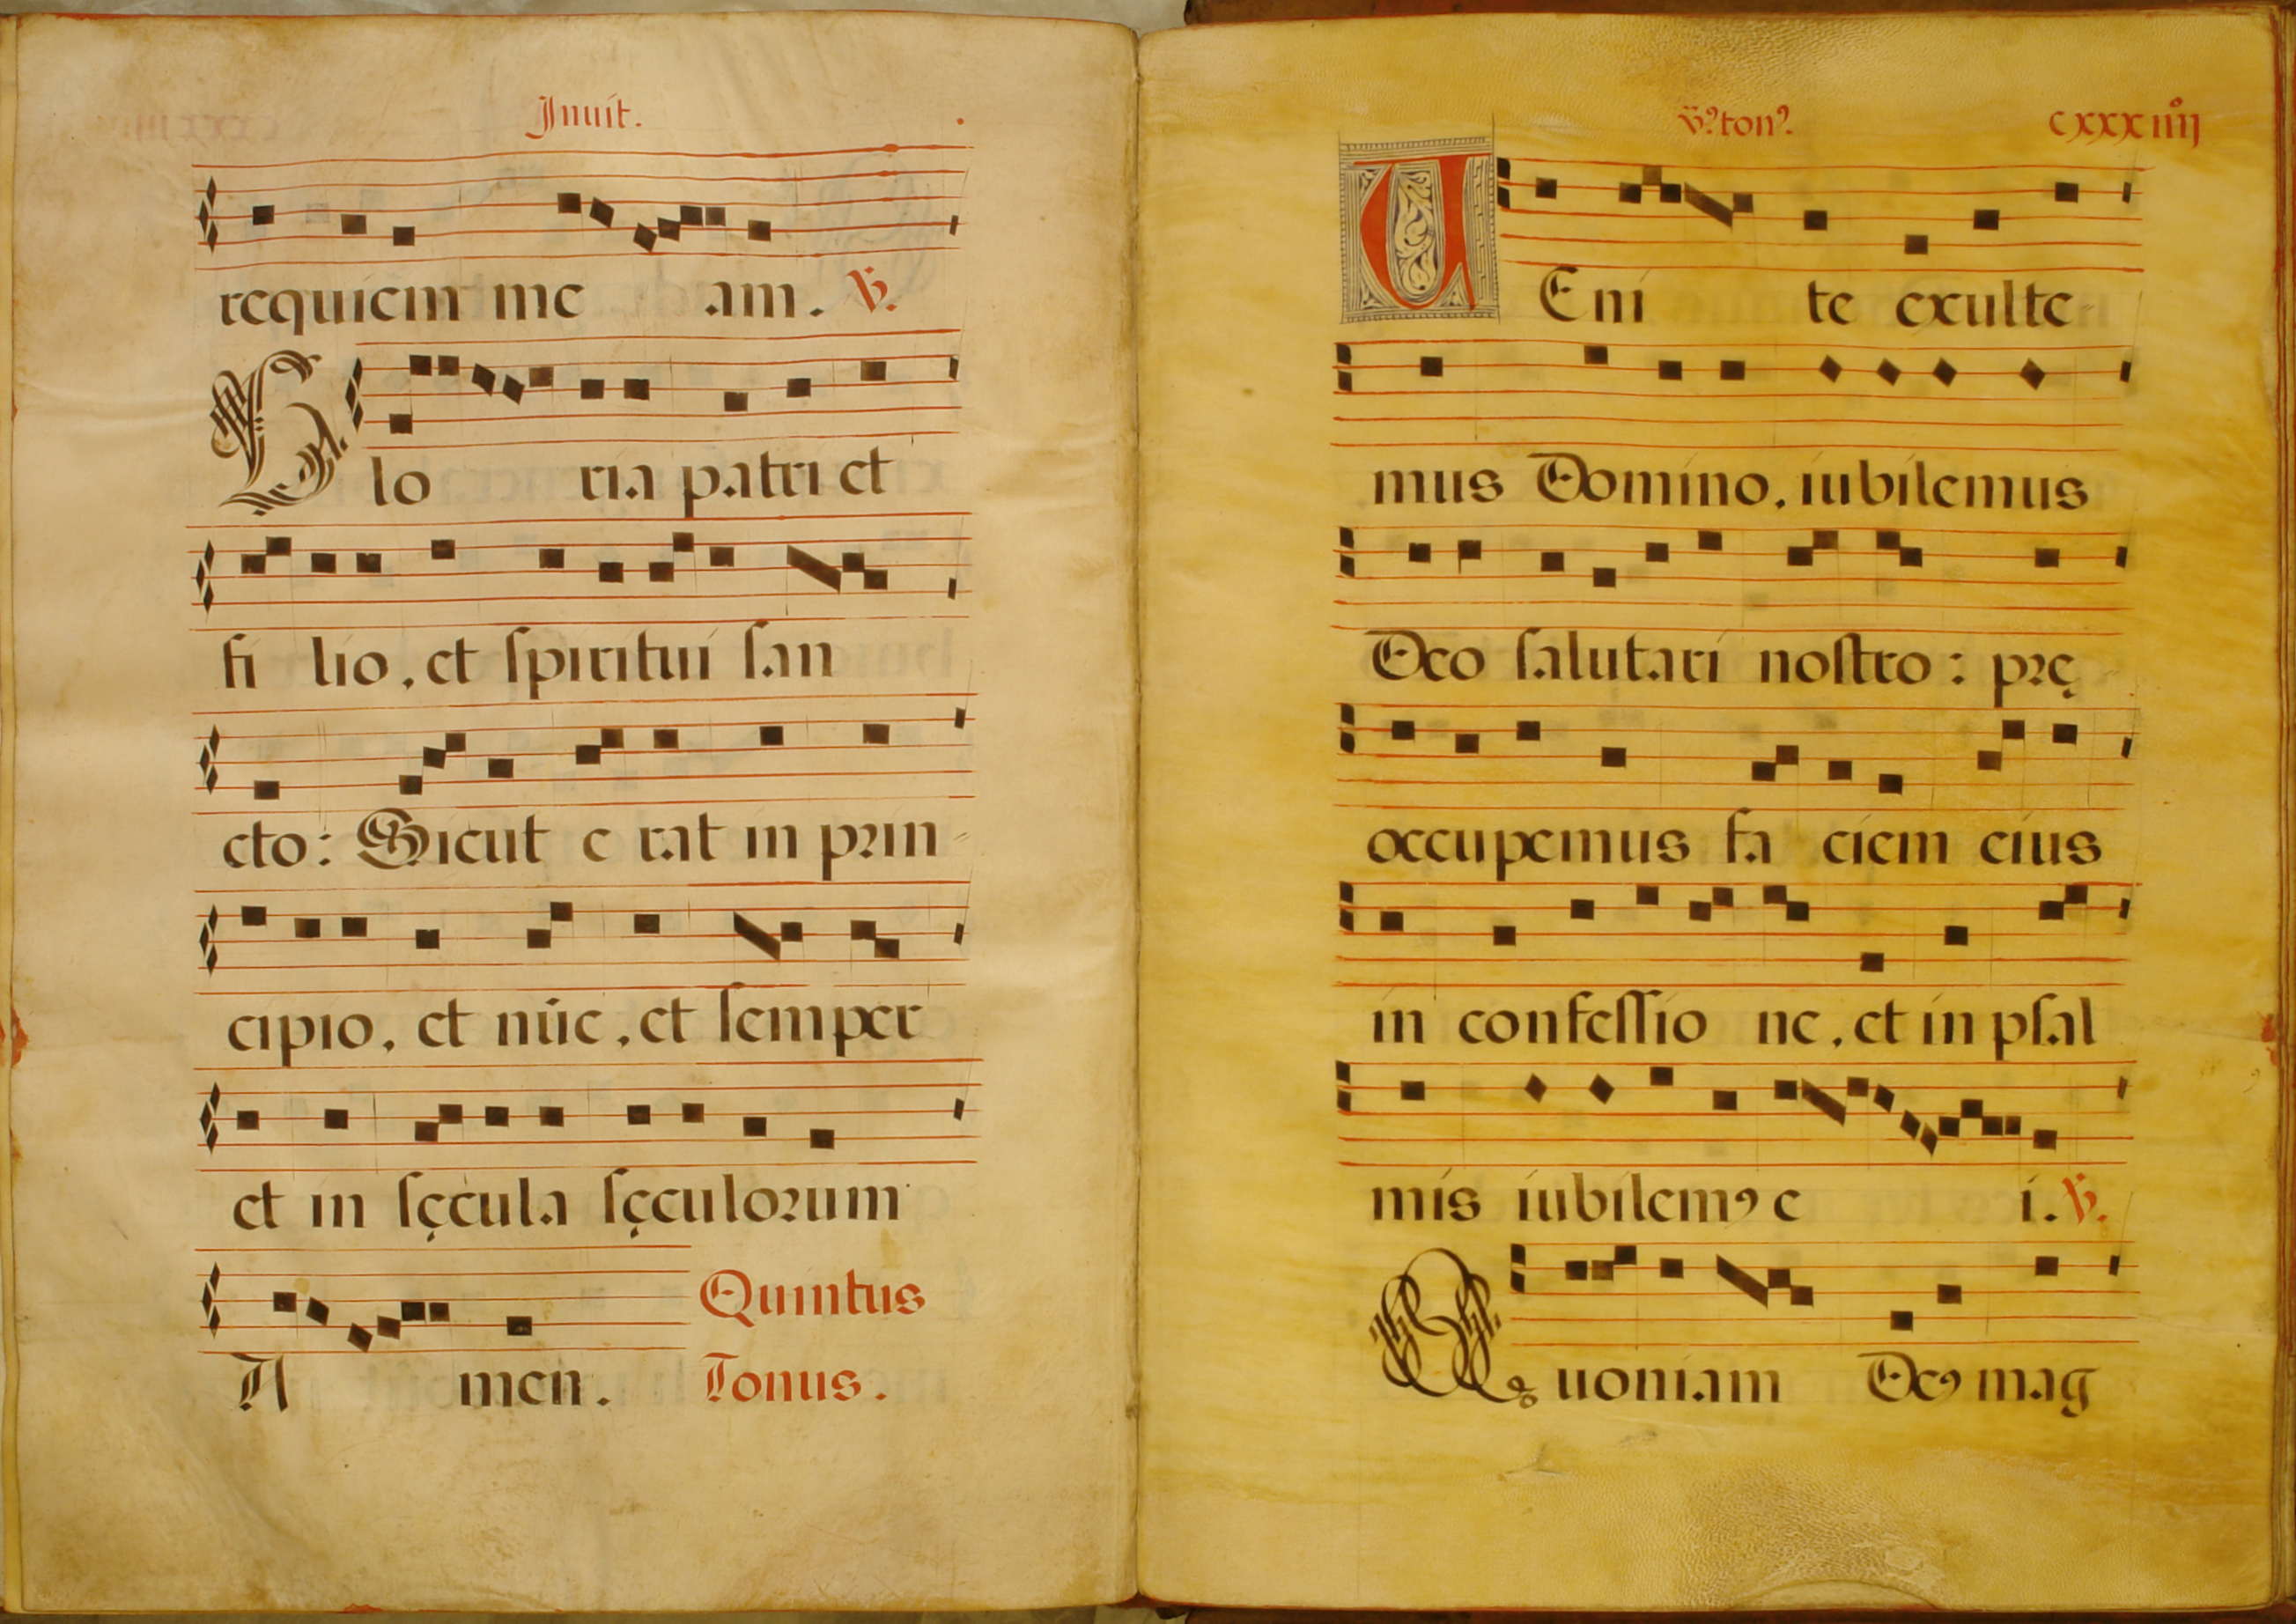 Inuit.
requiem me am. ℣.
Glo ria patri et
fi lio, et ſpiritui ſan
cto: Sicut e rat in prin-
cipio, et nūc, et ſemper
et in ſęcula ſęculorum
A men.
Quintus
Tonus.
v⁹ ton⁹.
cxxxiiij
VEni te exulte-
mus Domino, iubilemus
Deo ſalutari noſtro: prę
occupemus fa ciem eius
in confeſſio ne, et in pſal
mis iubilem⁹ e i. ℣.
Quoniam De⁹ mag